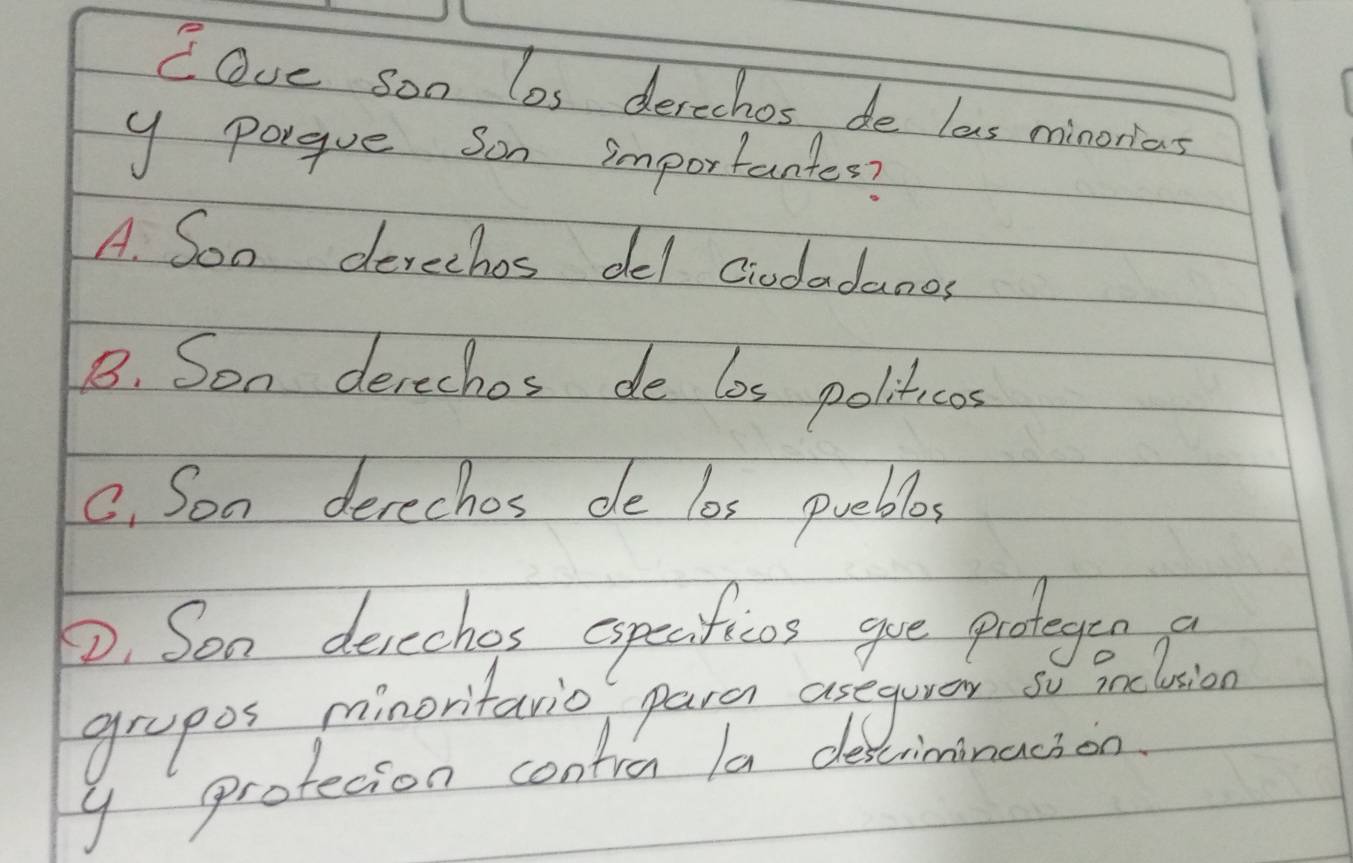 ¿Que son los derechos de las minorias
y porque son importantes?
A. Son derechos del ciudadanos
B. Son derechos de los politicos
C. Son derechos de los pueblos
D. Son derechos especificos que protegen a
grupos minoritario para asegurar su inclusion
y protecion contra la descriminación.